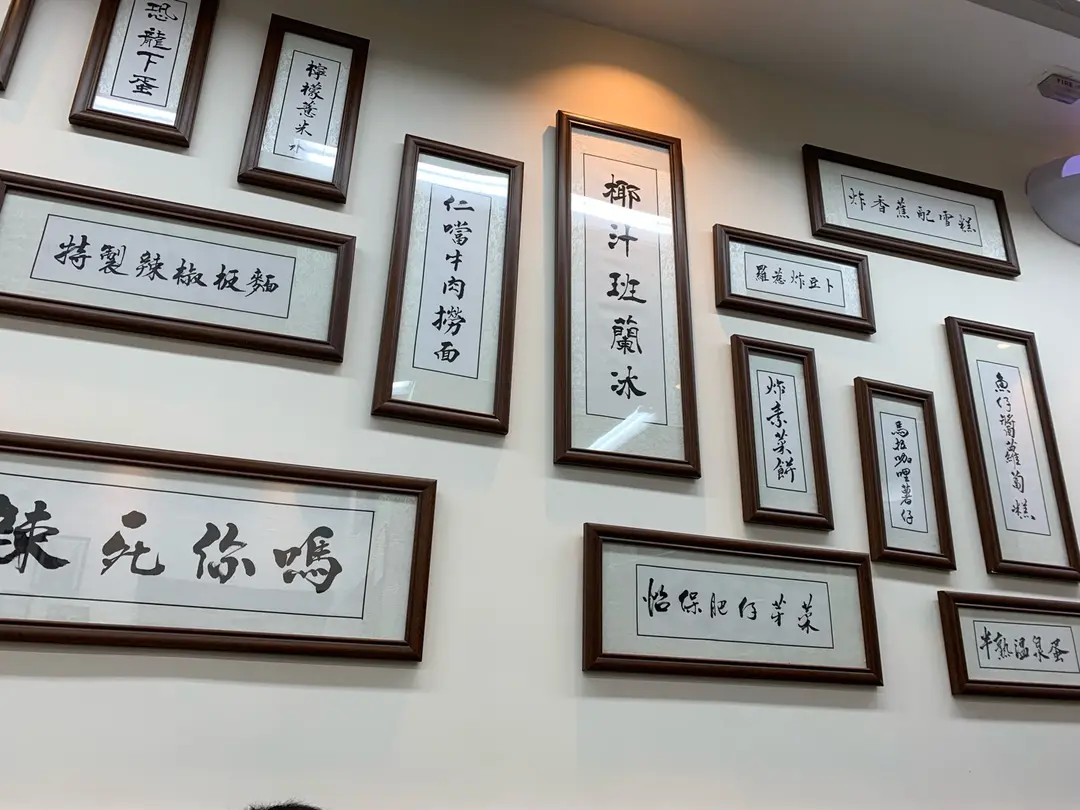 恐龍下蛋
檸檬薏米水
特製辣椒板麵
仁噹牛肉撈面
椰汁班蘭冰
炸香蕉配雪糕
羅惹炸豆卜
炸素菜餅
馬拉咖哩薯仔
魚仔醬蘿蔔糕
辣死你嗎
怡保肥仔芽菜
半熟溫泉蛋